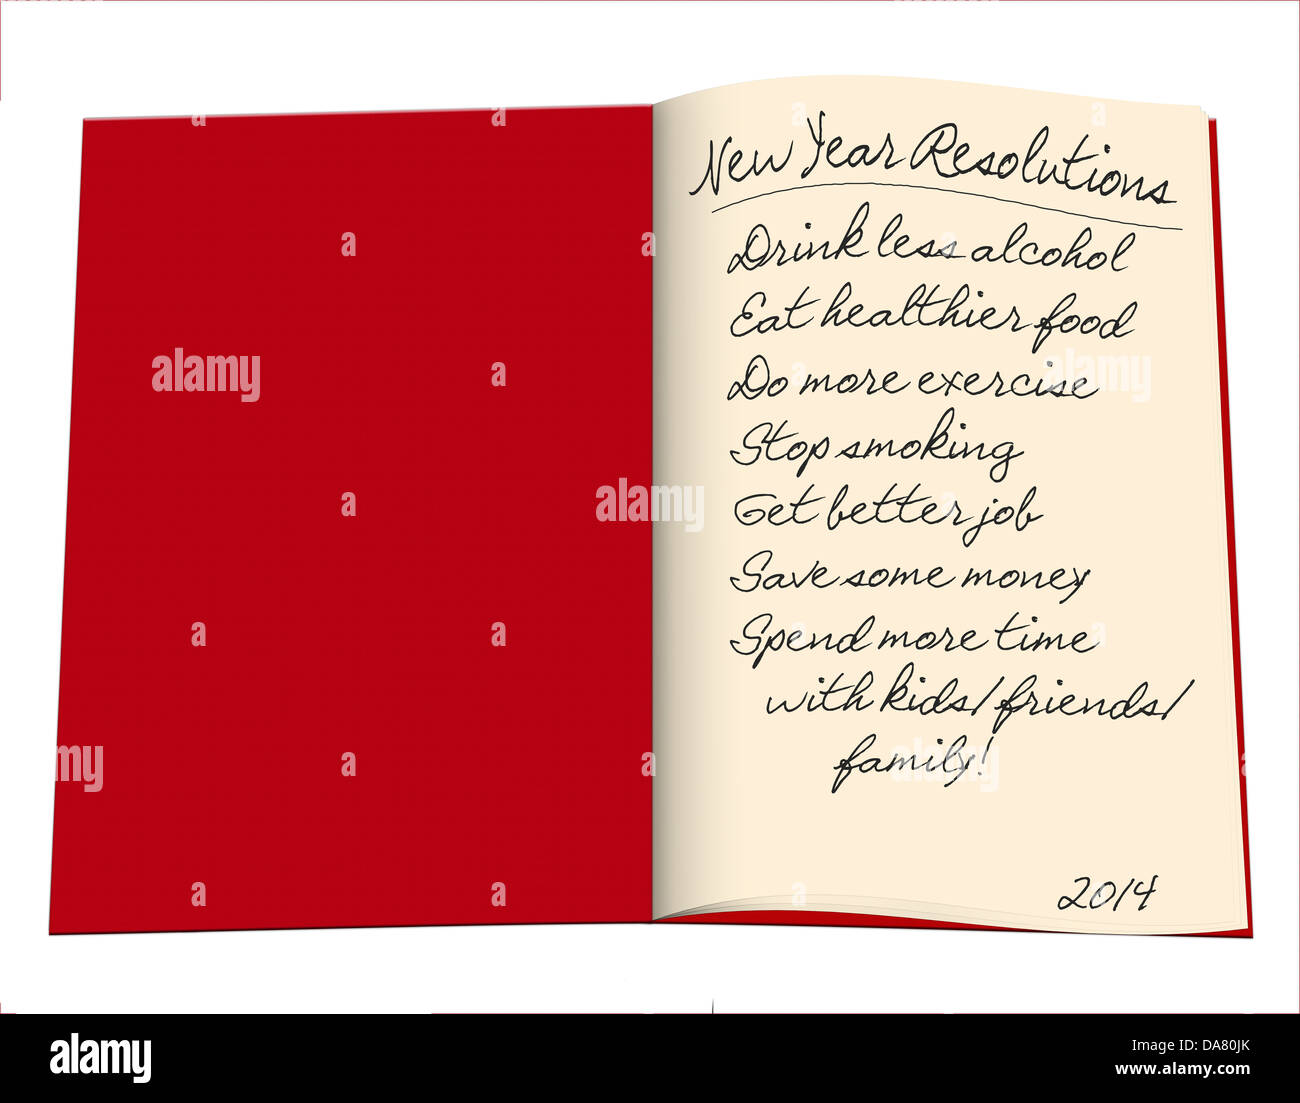 New Year Resolutions
Drink less alcohol
Eat healthier food
Do more exercise
Stop smoking
Get better job
Save some money
Spend more time
with kids/friends/
family!
2014
alamy
a
alamy stock photo
DA80JK
www.alamy.com